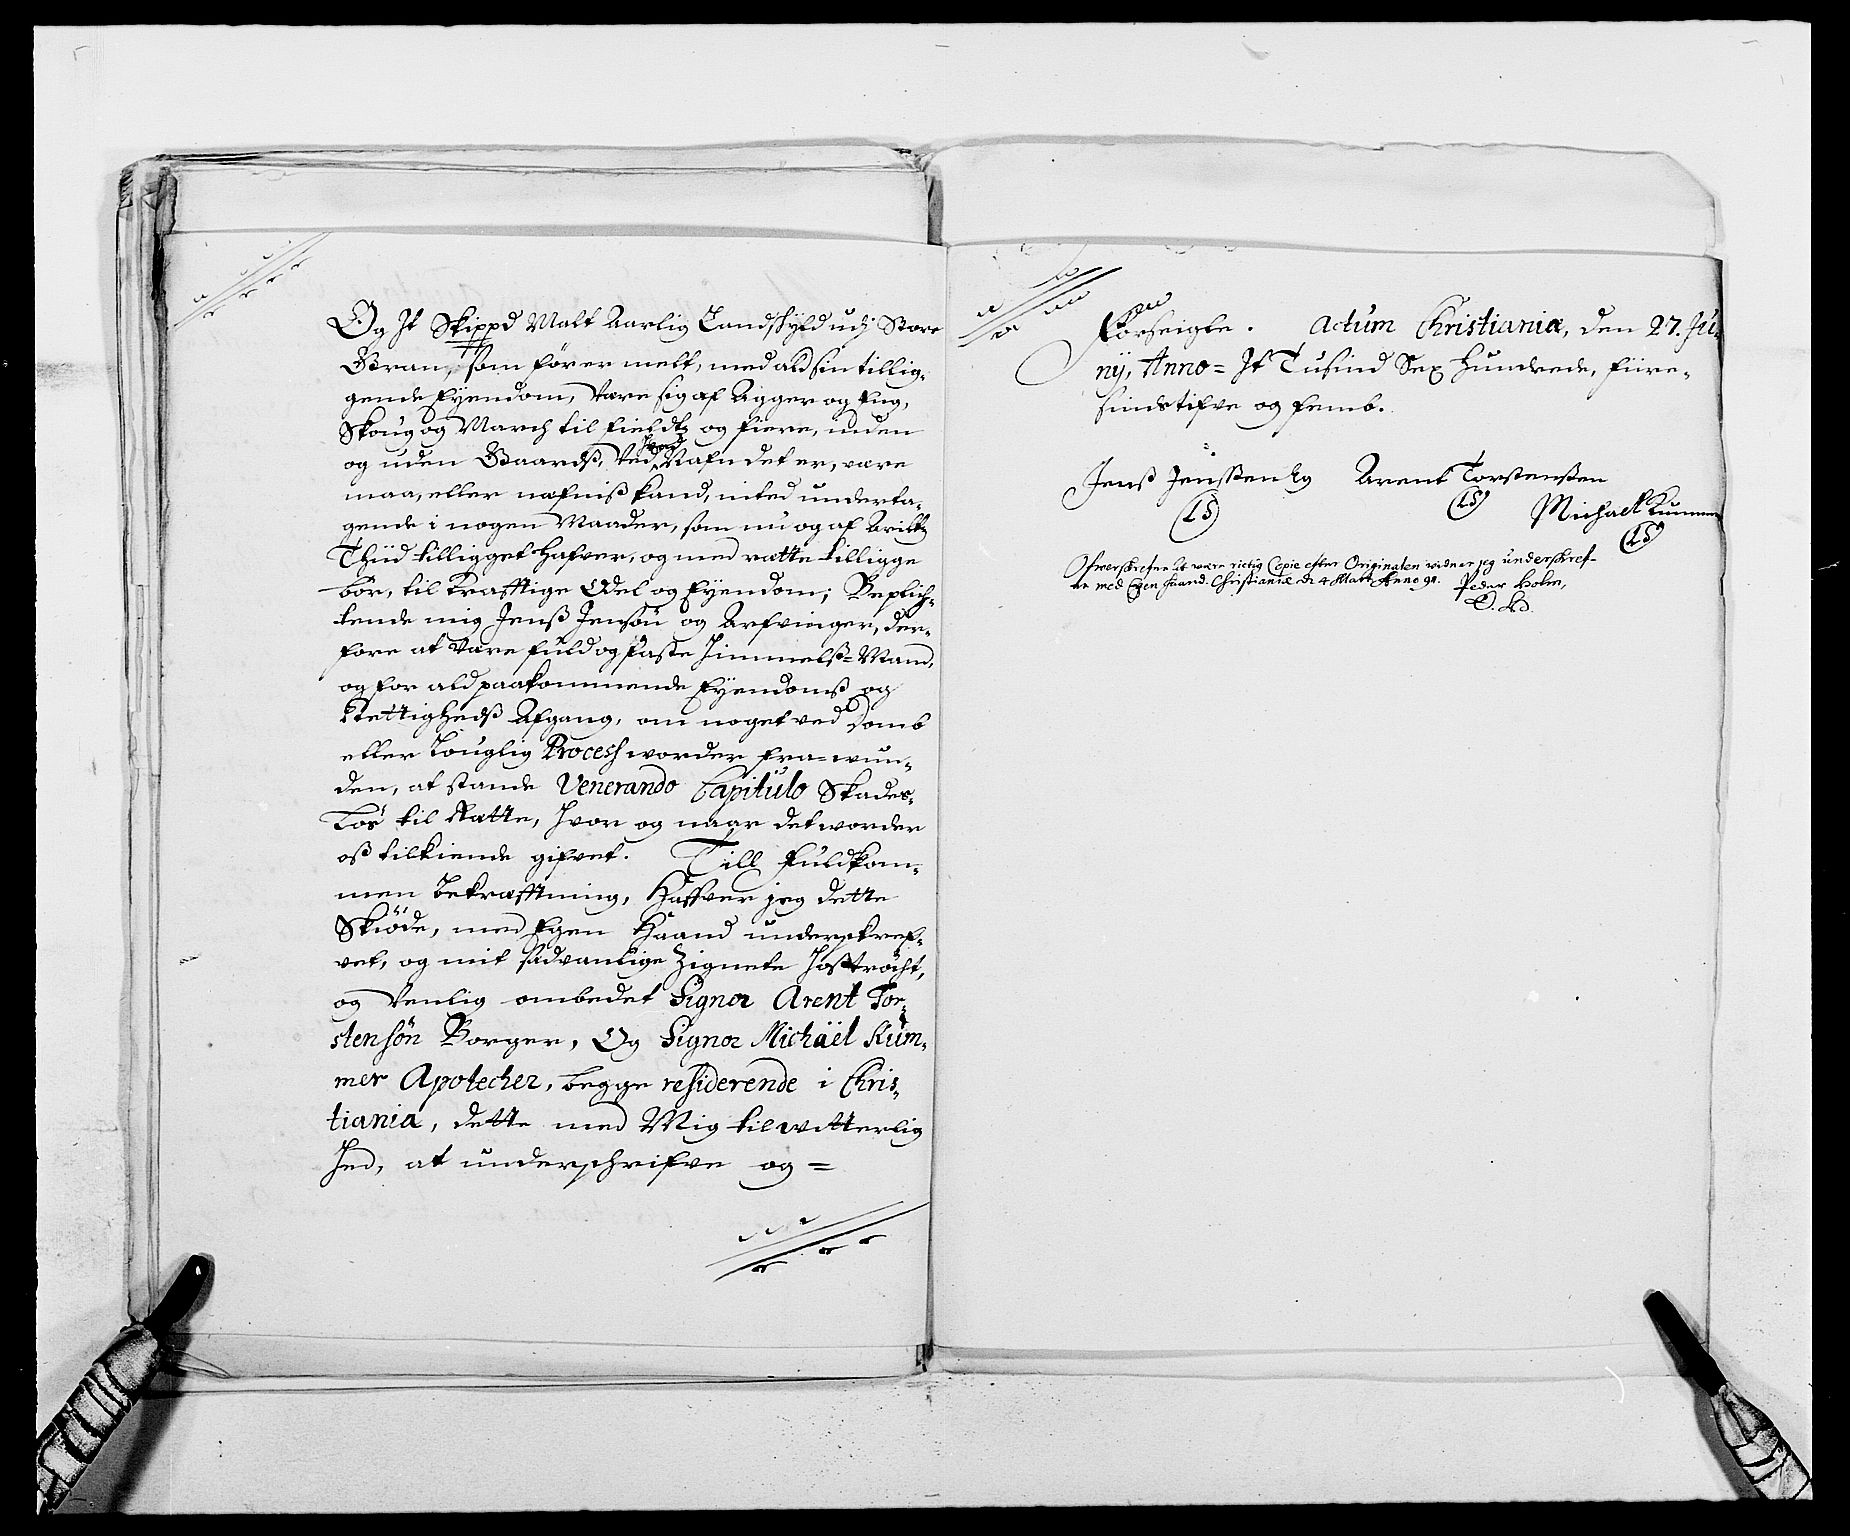 Og Jt Skippd Malt Aarlig Landskyld udj Store
Gran, som förer melt, med ald sin tillig-
gende Eyendom, være sig af Agger og Eng,
Skoug og March til Fieldtz og Fiere, inden
og uden Gaardß, ved hvad Nafn det er, være
maa, eller næfniß kand, inted underta-
gende i nogen Maader, som nu og af Arildtz
Thiid tilligget hafver, og med rætte tilligge
bör, til Krafftige Odel og Eyendom; Beplich-
tende mig Jenß Jensön og Arfvinger, der-
fore at være fuld og faste Himmelß-Mand,
og for ald paakommende Eyendomß og
Rettighedß Afgang, om noget ved Domb
eller Louglig Process worder fra-wun-
den, at stande Venerando Capitulo Skades-
Löß til Rætte, hvor og naar det worder
oß tilkiende gifvet. Till fuldkom-
men bekræfftning, Haffver jeg dette
Skiöde, med Egen Haand underskref-
vet, og mit sædvanlige Zignete hoströcht,
og venlig ombedet Signor Arent Tor-
stensön Borger, Og Signor Michäel Kùm-
mer Apotecher, begge residerende i Chris-
tiania, dette med Mig til witterlig
hed, at underschrifve og =
Forseigle. Actum Christianiæ, den 27. Jù-
nij, Anno = Jt Tusind Sex Hundrede, Fiire-
sindstifve og femb.
Jenß Jenssen Arent Torstenßen
LS LS Michael Kummer
LS
Ofverskrefne at være rictig Copie efter Originalen vidner jeg underskref-
ne med Egen Haand. Christianie d. 4 Marty Anno 91. Peder Holm,